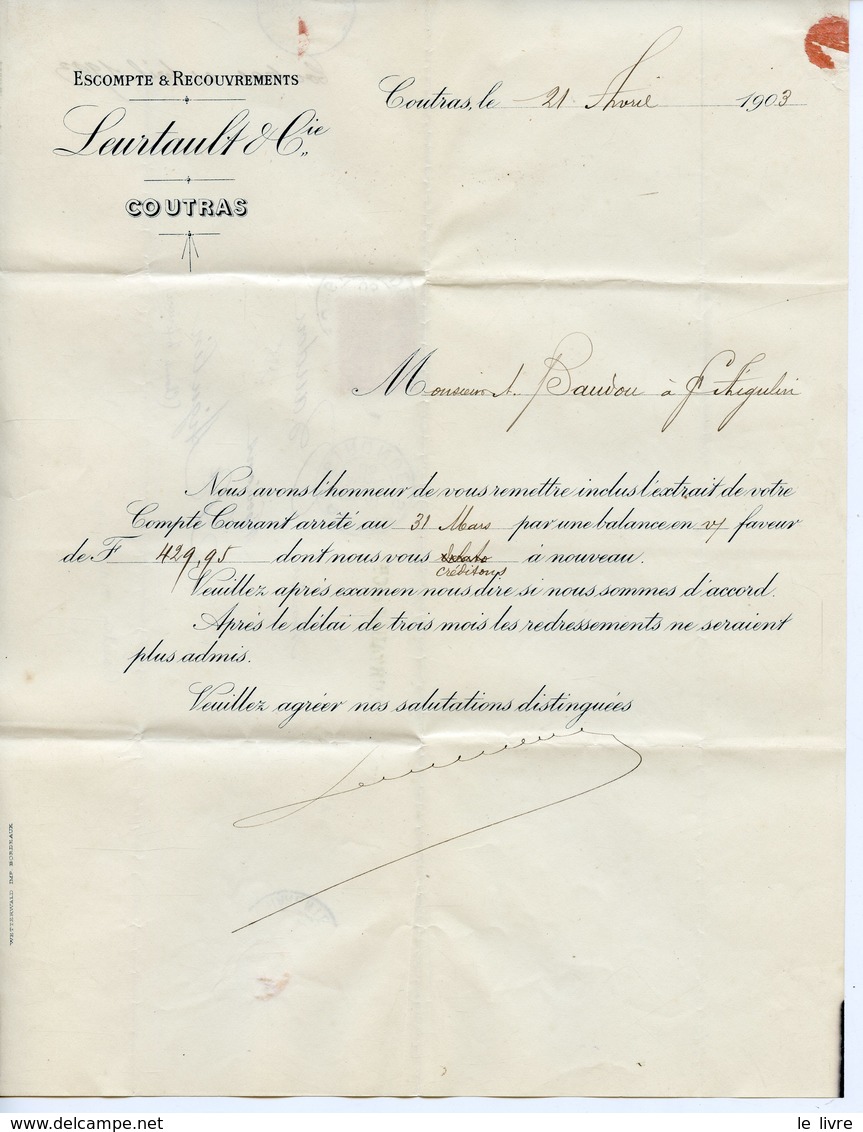 ESCOMPTE & RECOUVREMENTS
Leurtault & Cie
COUTRAS
Coutras, le 21 Avril 1903
Monsieur A. Baudou à St Aigulin
Nous avons l'honneur de vous remettre inclus l'extrait de votre
Compte Courant arrêté au 31 Mars par une balance en v/ faveur
de F 429,95 dont nous vous créditons à nouveau.
Veuillez après examen nous dire si nous sommes d'accord.
Après le délai de trois mois les redressements ne seraient
plus admis.
Veuillez agréer nos salutations distinguées
WETTERWALD IMP BORDEAUX
le livre